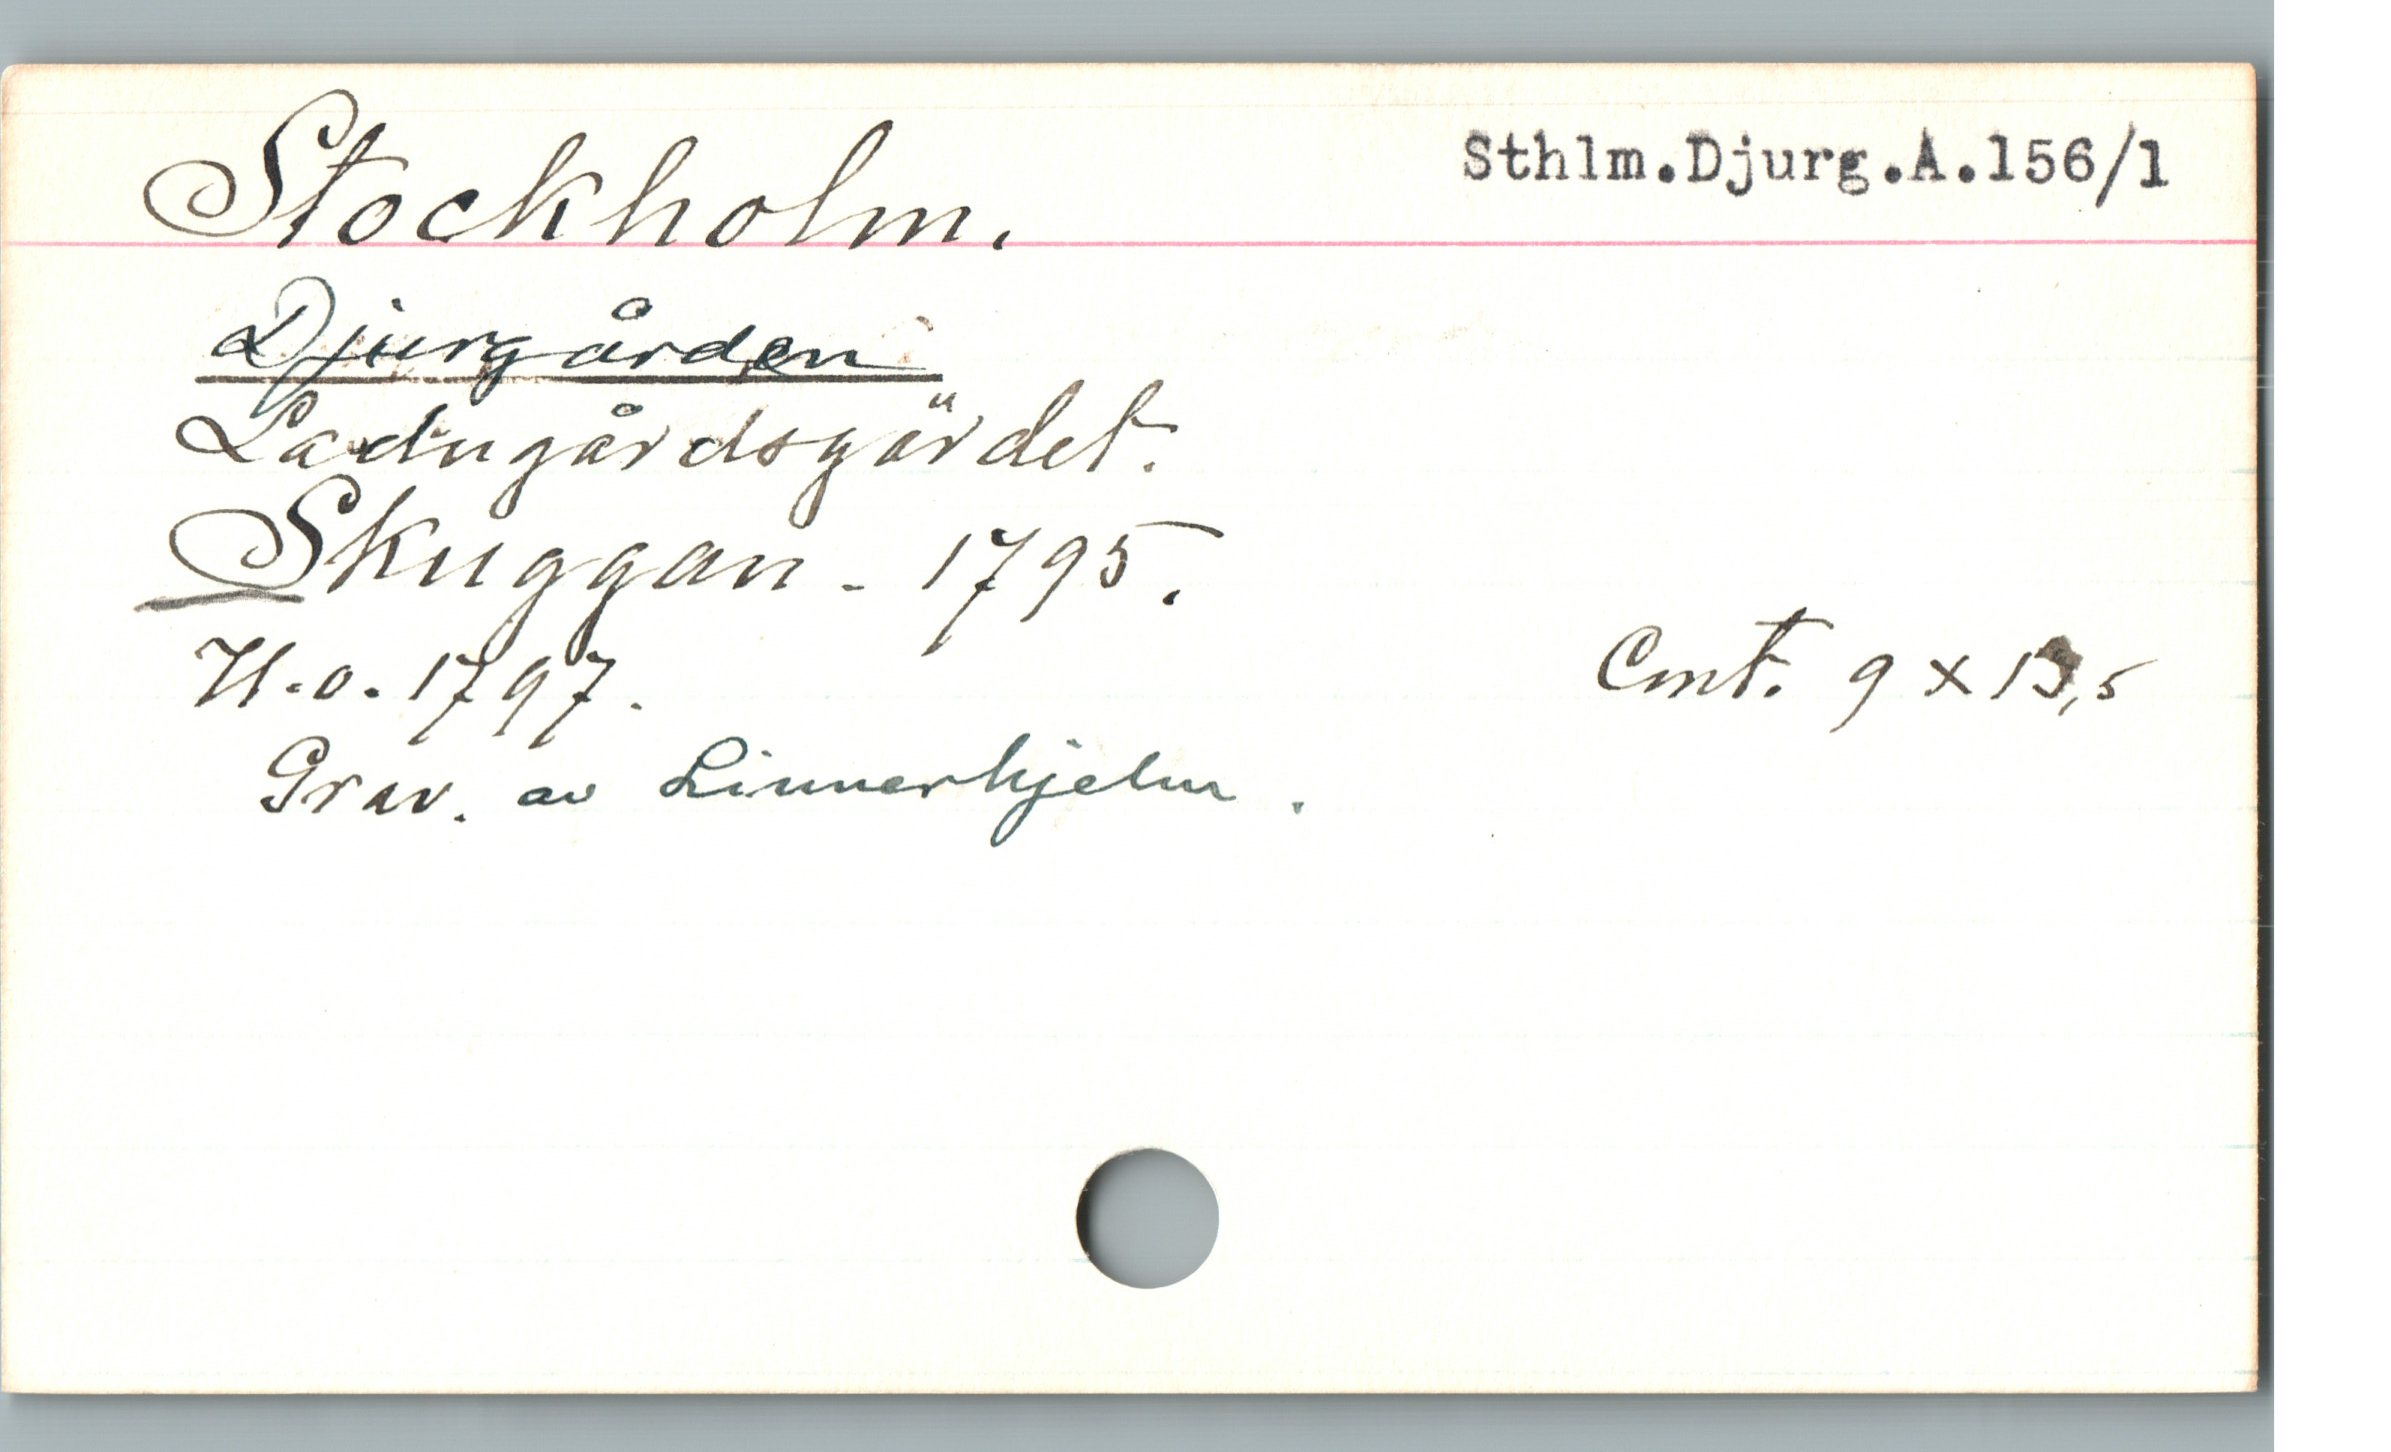 Stockholm. Sthlm.Djurg.A.156/1
Djurgården
Ladugårdsgärdet.
Skuggan - 1795.
H.o. 1797. Cmt. 9 x 13,5
Grav. av Linnerhjelm.